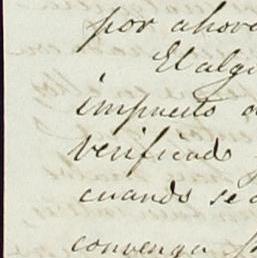 por ahora
El algo
impuesto
verificado
cuando se
convenga